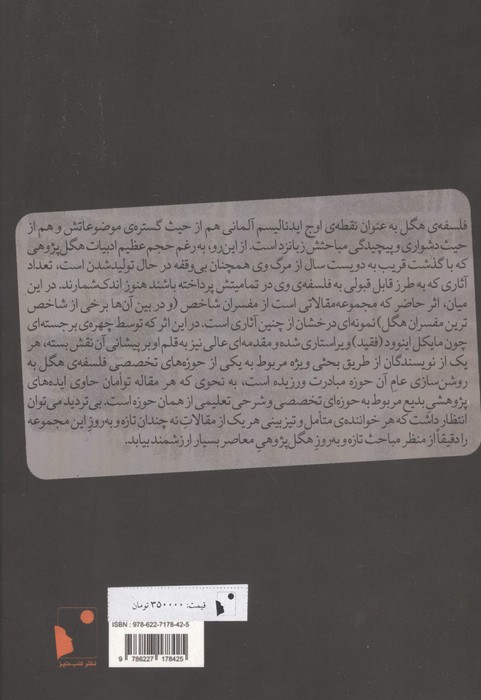 فلسفه‌ی هگل به عنوان نقطه‌ی اوج ایدئالیسم آلمانی هم از حیث گستره‌ی موضوعاتش و هم از
حیث دشواری و پیچیدگی مباحثش زبانزد است. از این رو، به‌رغم حجم عظیم ادبیات هگل‌پژوهی
که با گذشت قریب به دویست سال از مرگ وی همچنان بی‌وقفه در حال تولیدشدن است، تعداد
آثاری که به طرز قابل قبولی به فلسفه‌ی وی در تمامیتش پرداخته باشند هنوز اندک‌شمارند. در این
میان، اثر حاضر که مجموعه‌مقالاتی است از مفسران شاخص (و در بین آن‌ها برخی از شاخص
ترین مفسران هگل) نمونه‌ای درخشان از چنین آثاری است. در این اثر که توسط چهره‌ی برجسته‌ای
چون مایکل اینوود (فقید) ویراستاری شده و مقدمه‌ای عالی نیز به قلم او بر پیشانی آن نقش بسته، هر
یک از نویسندگان از طریق بحثی ویژه مربوط به یکی از حوزه‌های تخصصی فلسفه‌ی هگل به
روشن‌سازی عام آن حوزه مبادرت ورزیده است، به نحوی که هر مقاله توأمان حاوی ایده‌های
پژوهشی بدیع مربوط به حوزه‌ای تخصصی و شرحی تعلیمی از همان حوزه است. بی‌تردید می‌توان
انتظار داشت که هر خواننده‌ی متأمل و تیزبینی هر یک از مقالاتِ نه چندان تازه و به‌روزِ این مجموعه
را دقیقاً از منظر مباحث تازه و به‌روزِ هگل‌پژوهیِ معاصر بسیار ارزشمند بیابد.
قیمت: ۳۵۰۰۰۰ تومان
ISBN : 978-622-7178-42-5
9 786227 178425